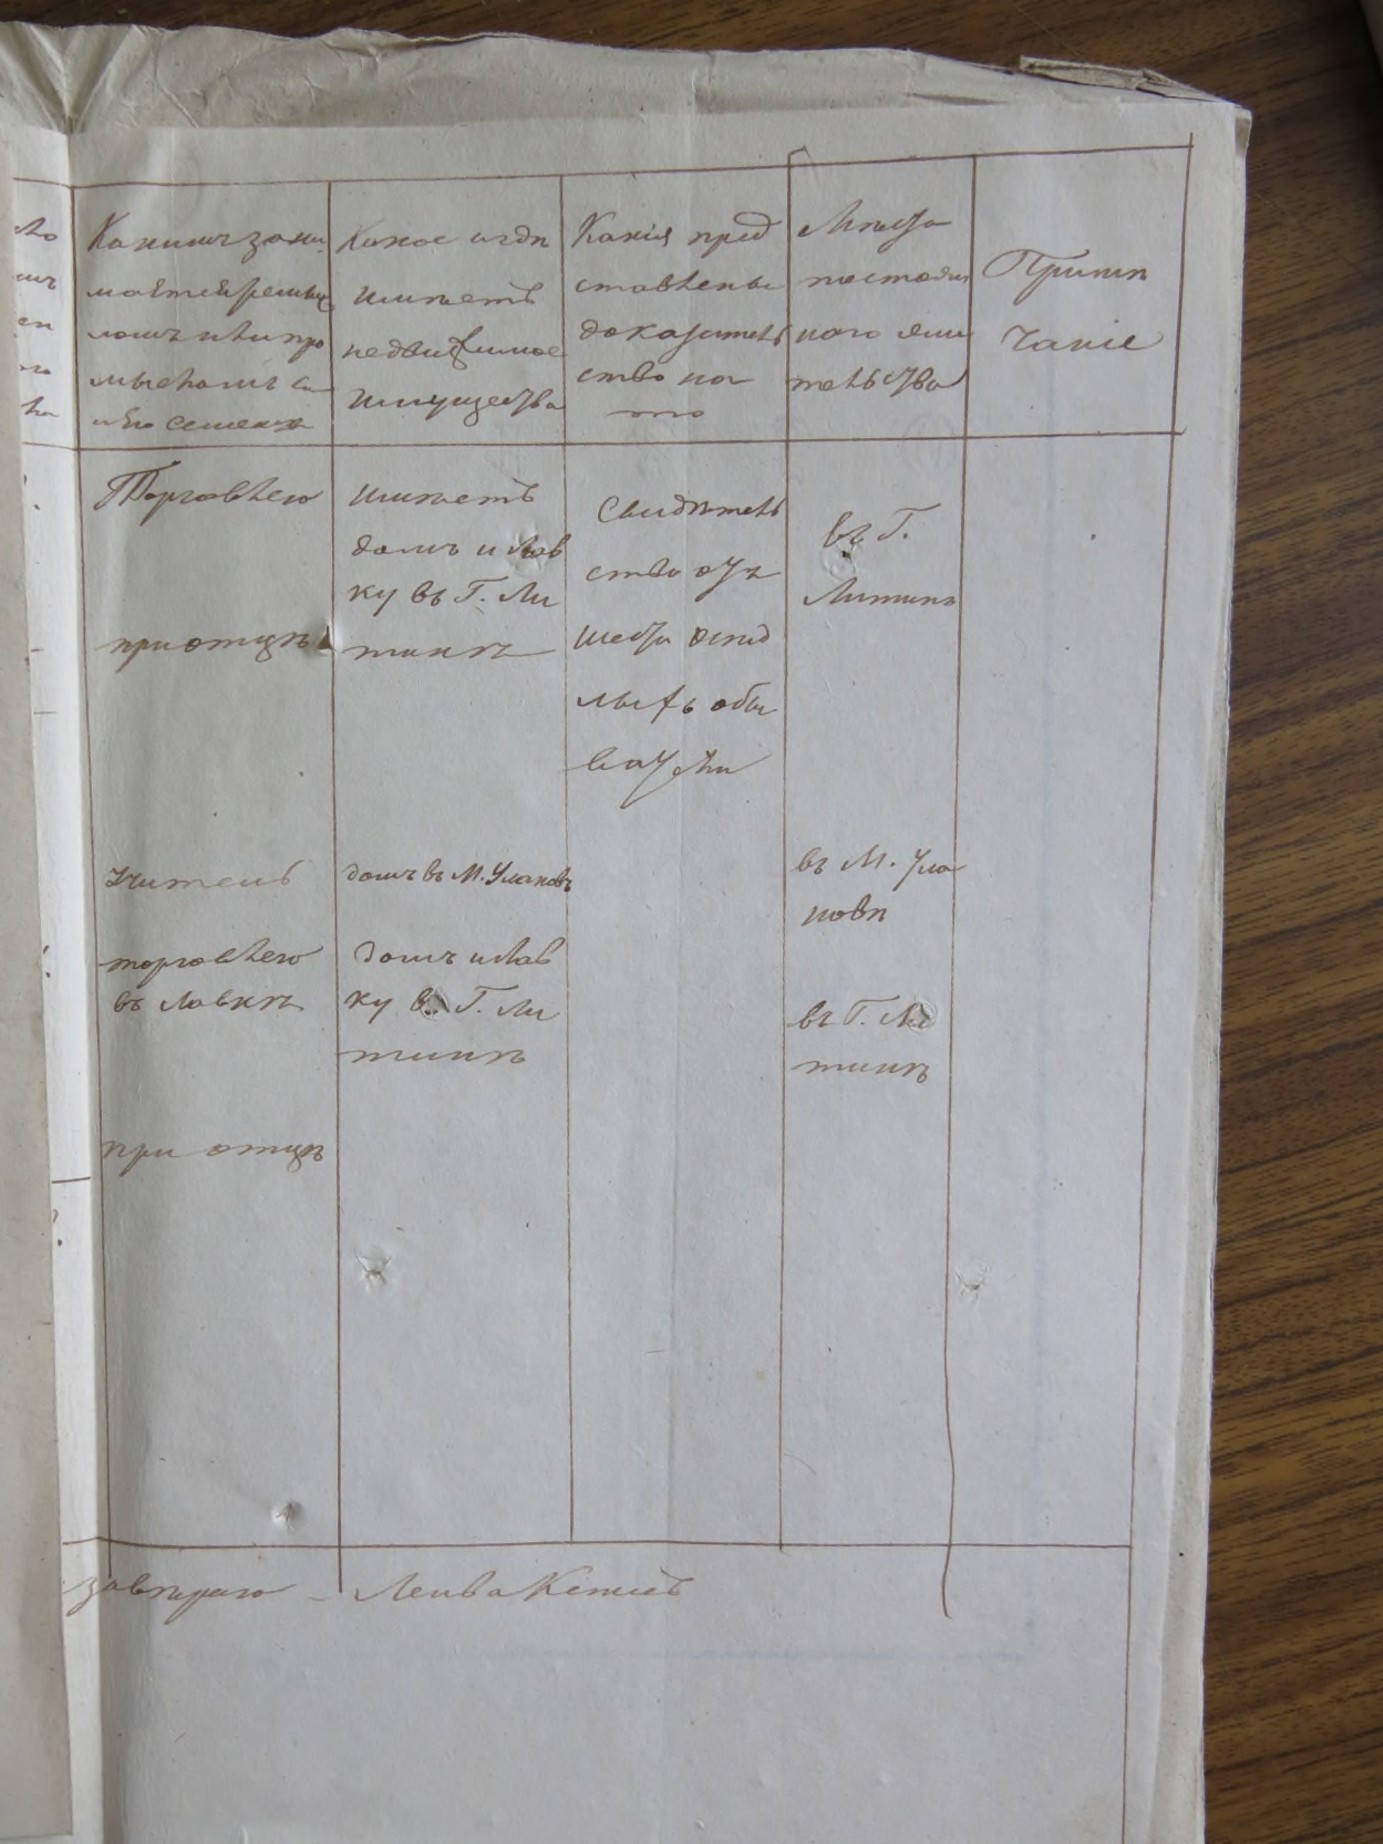 Какимъ зани
маетсяремес
ломъ или про
мысломъ са
и его семейств
Какое и гдѣ
имѣетъ
недвижимое
имущество
Какія пред
ставлены
доказатель
ство на
это
Мѣсто
постоян
наго жи
тельства
Примѣ
чаніе
Торговлею
при отцѣ
имѣетъ
домъ и лав
ку въ Г. Ли
тинѣ
Свидѣтель
ство
осѣд
лыхъ обы
въ Г.
Литинѣ
Учитель
домъ въ М. Улановѣ
въ М. Ула
новѣ
торговлею
въ лавкѣ
домъ и лав
ку въ Г. Ли
тинѣ
въ Г. Ли
тинѣ
при отцѣ
Лейба